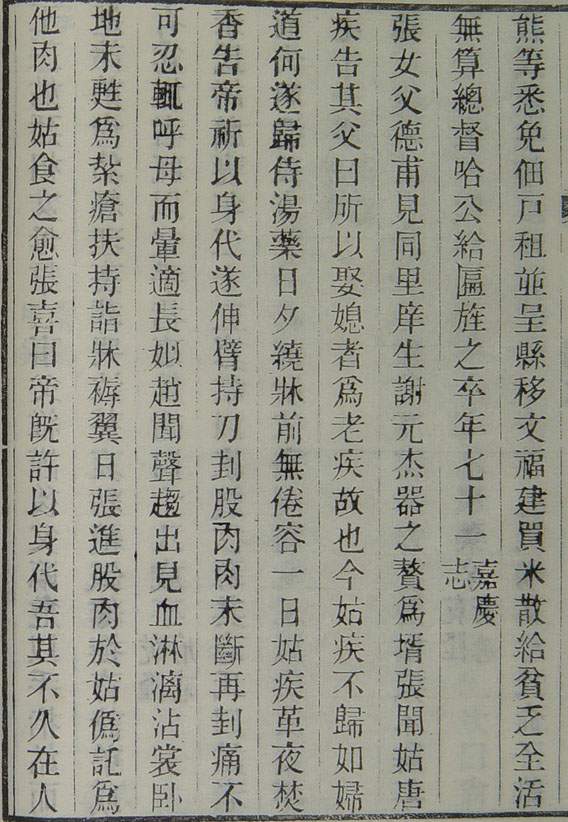 熊等悉免佃戸租並呈縣移文福建買米散給貧乏全活
無算總督哈公給匾旌之卒年七十一嘉慶志
張女父德甫見同里庠生謝元杰器之贅爲壻張聞姑唐
疾告其父曰所以娶媳者爲老疾故也今姑疾不歸如婦
道何遂歸侍湯藥日夕繞牀前無倦容一日姑疾革夜焚
香告帝祈以身代遂伸臂持刀刲股肉肉未斷再刲痛不
可忍輒呼母而暈適長姒趙聞聲趨出見血淋漓沾裳臥
地未甦爲紮瘡扶持詣牀褥翼日張進股肉於姑僞託爲
他肉也姑食之愈張喜曰帝旣許以身代吾其不久在人